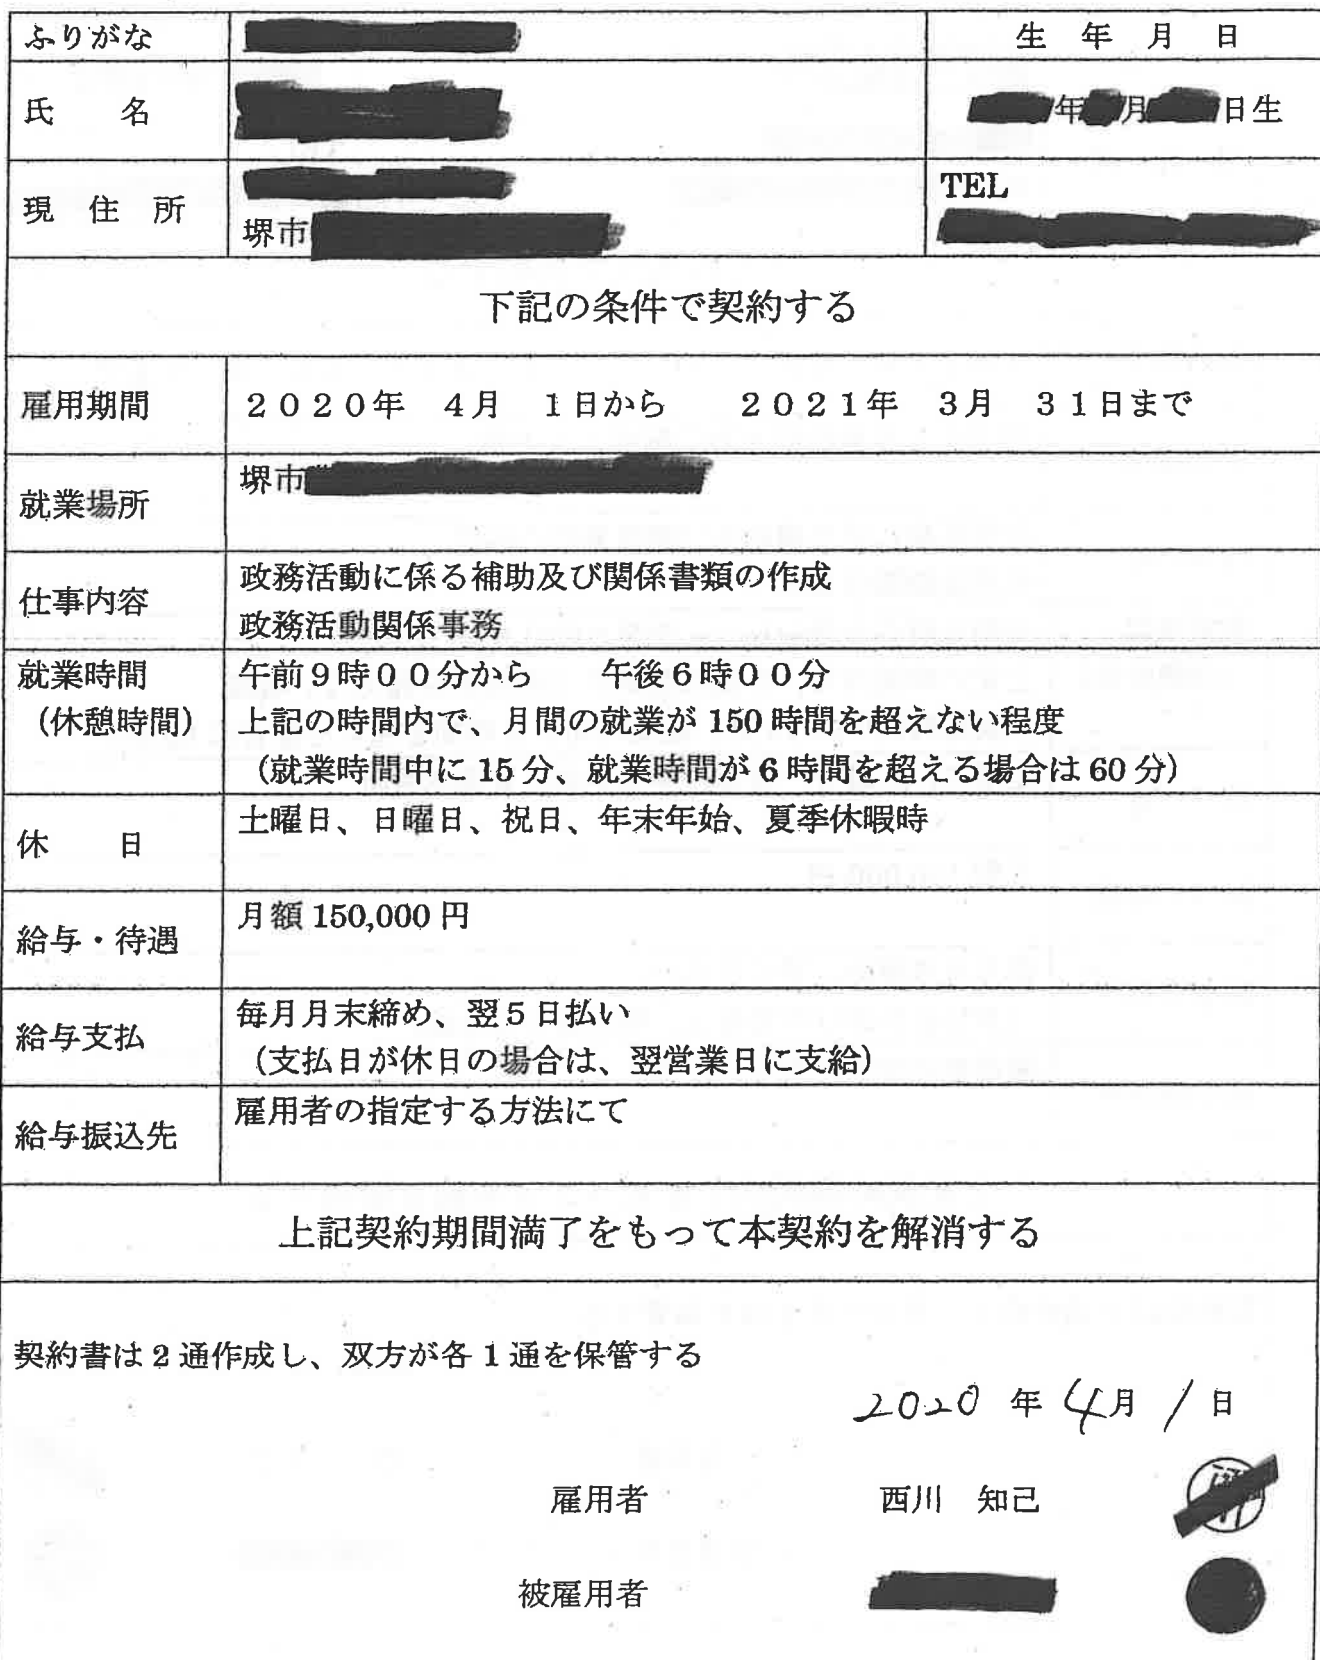 ふりがな
生　年　月　日
氏　　名
年　月　日生
現　住　所
堺市
TEL
下記の条件で契約する
雇用期間
２０２０年　４月　１日から　　２０２１年　３月　３１日まで
就業場所
堺市
仕事内容
政務活動に係る補助及び関係書類の作成
政務活動関係事務
就業時間
（休憩時間）
午前９時００分から　　午後６時００分
上記の時間内で、月間の就業が 150 時間を超えない程度
（就業時間中に 15 分、就業時間が 6 時間を超える場合は 60 分）
休　　日
土曜日、日曜日、祝日、年末年始、夏季休暇時
給与・待遇
月額 150,000 円
給与支払
毎月月末締め、翌５日払い
（支払日が休日の場合は、翌営業日に支給）
給与振込先
雇用者の指定する方法にて
上記契約期間満了をもって本契約を解消する
契約書は 2 通作成し、双方が各 1 通を保管する
2020 年 4月 1 日
雇用者　　西川　知己
被雇用者